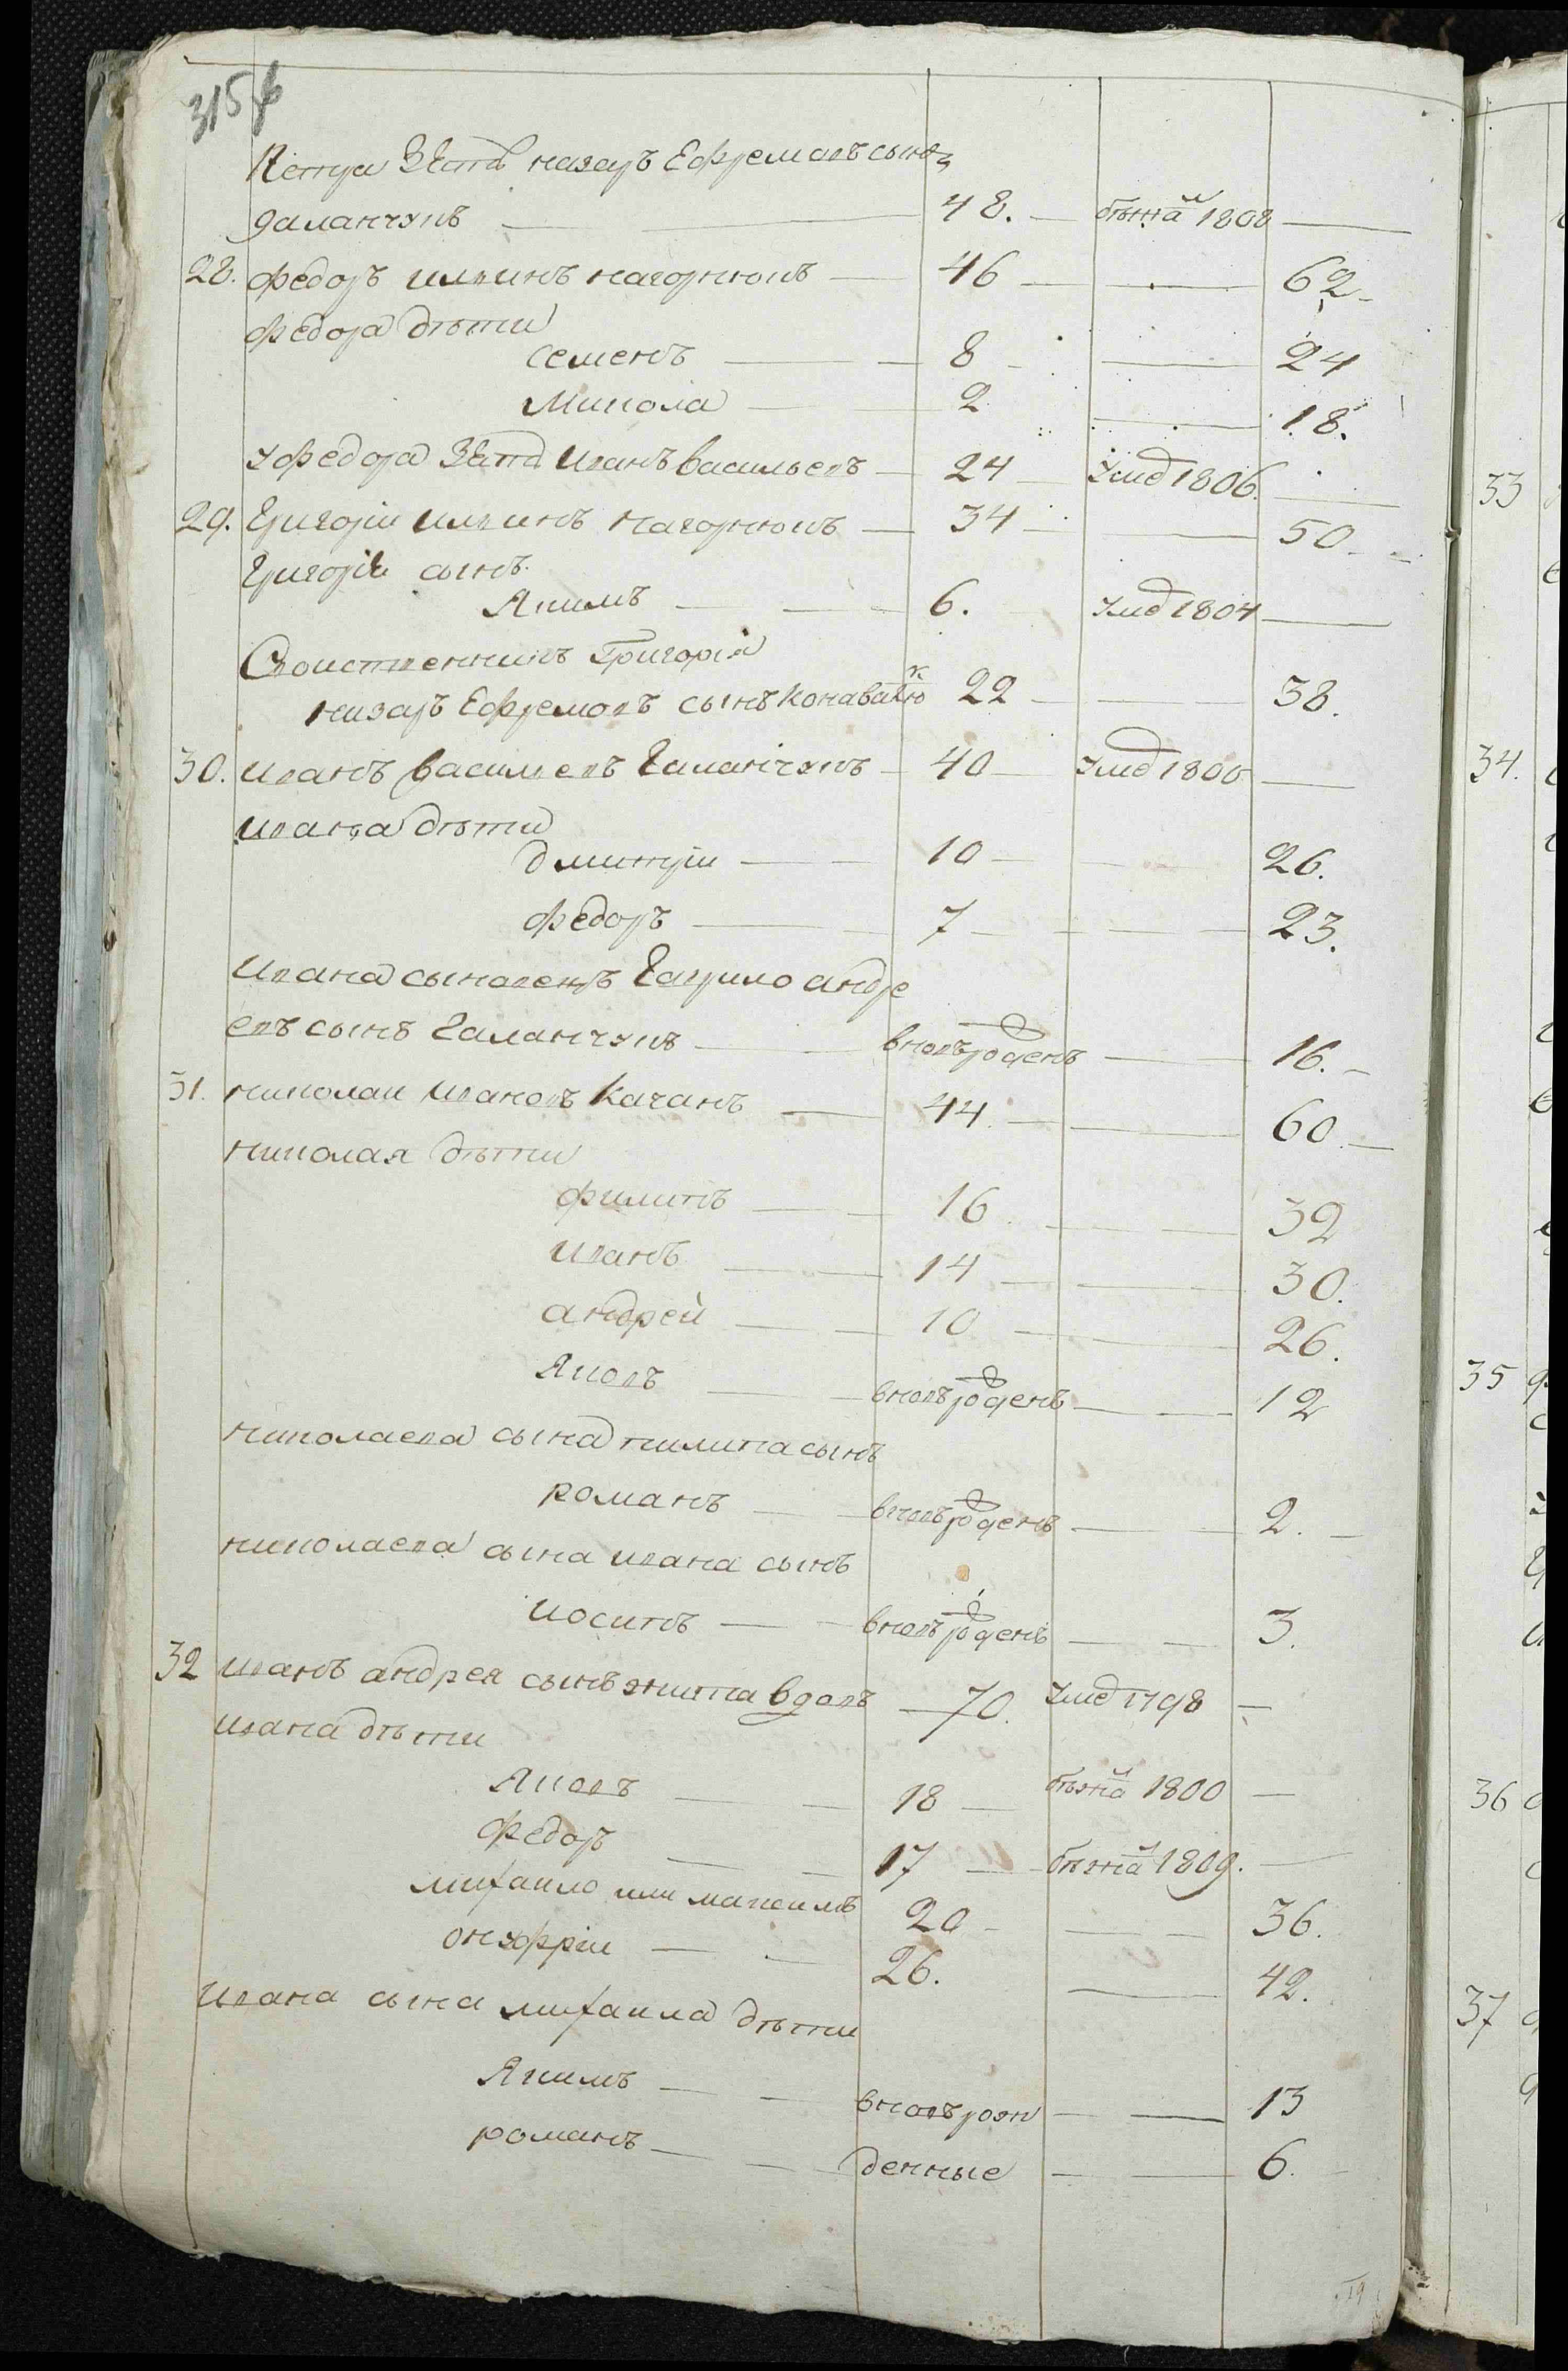 315 б
Петра Зять назаръ Ефремовъ сынъ
даланчукъ 48. бѣжа л 1808
28. Федоръ илвинъ нагорнюкъ 46 62
Федора дѣти
Семенъ 8 24
Микола 2 18.
У федора Зять Иванъ васильевъ 24 Умер 1806.
29. Григорїи илвинъ нагорнюкъ 34 50
Григорїя сынъ
Якимъ 6. Умер 1804
Своиственникъ Григорїя
назаръ Ефремовъ сынъ Конавалюк 22 38.
30. иванъ василевъ Галанчукъ 40 Умер 1806
ивана дѣти
дмитрїи 10 26.
федоръ 7 23.
Ивана сыновецъ Гаврило андре
евъ сынъ Галанчукъ вновъ рожденъ 16.
31. николаи Ивановъ Качанъ 44. 60
николая дѣти
филипъ 16 32
иванъ 14 30.
андрей 10 26.
Яковъ вновъ рожденъ 12
николаева сына пилипа сынъ
романъ вновъ рожденъ 2.
николаева сына ивана сынъ
иосипъ вновъ рожденъ 3.
32 иванъ андрея сынъ вдовъ 70. Умер 1798
ивана дѣти
Яковъ 18 бѣжа л 1800
Федоръ 17 бѣжа л 1809.
михаило или максимъ 20 36.
онуфрїи 26. 42.
Ивана сына михаила дѣти
Якимъ вновъ рож 13
романъ денные 6.
33
34.
35
36
37